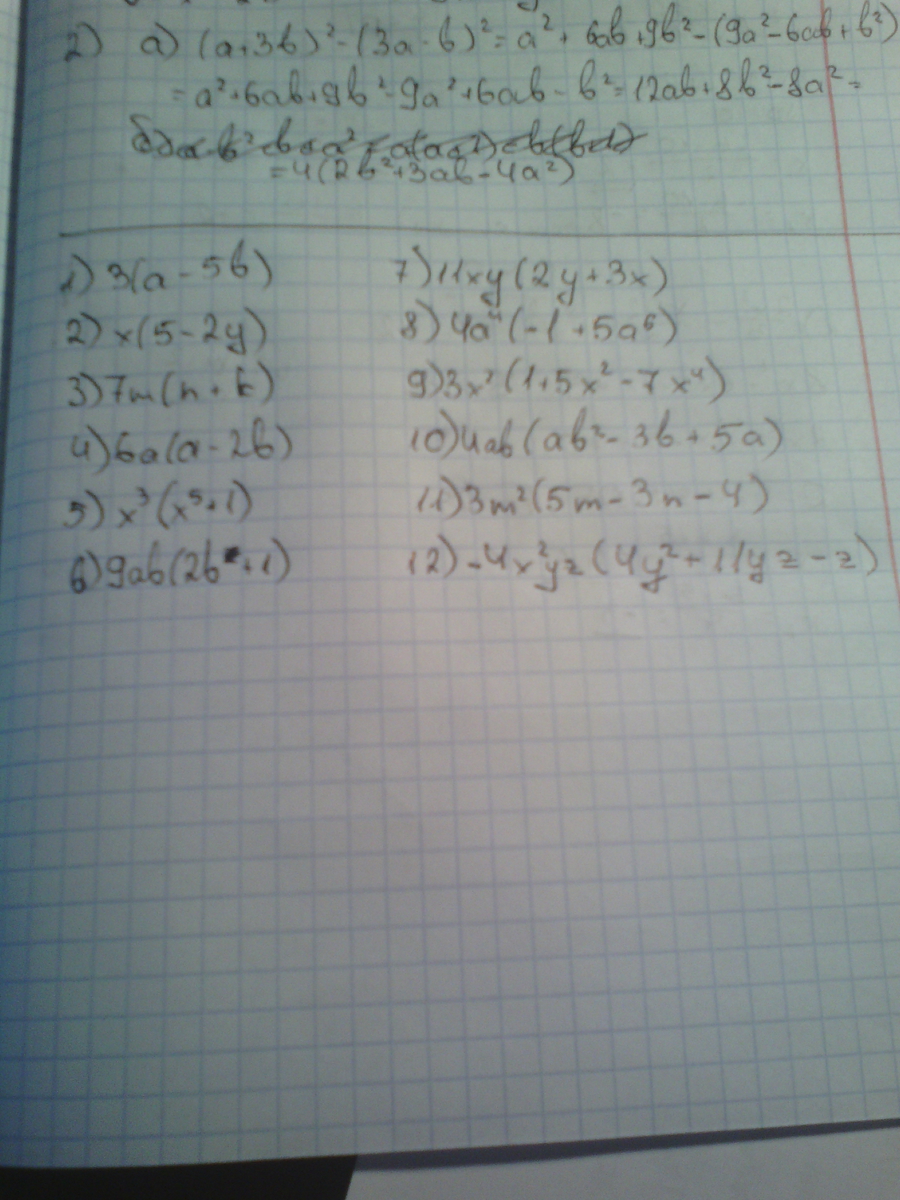 2) а) (a+3b)²-(3a-b)²=a²+6ab+9b²-(9a²-6ab+b²)
=a²+6ab+9b²-9a²+6ab-b²=12ab+8b²-8a²=
б)
=4(2b²+3ab-4a²)
1) 3(a-5b)
2) x(5-2y)
3) 7m(n+k)
4) 6a(a-2b)
5) x³(x⁵+1)
6) 9ab(2b+1)
7) 11xy(2y+3x)
8) 4a⁴(-1+5a⁶)
9) 3x²(1+5x²-7x⁴)
10) 4ab(ab²-3b+5a)
11) 3m²(5m-3n-4)
12) -4x²yz(4y²+11yz-z)